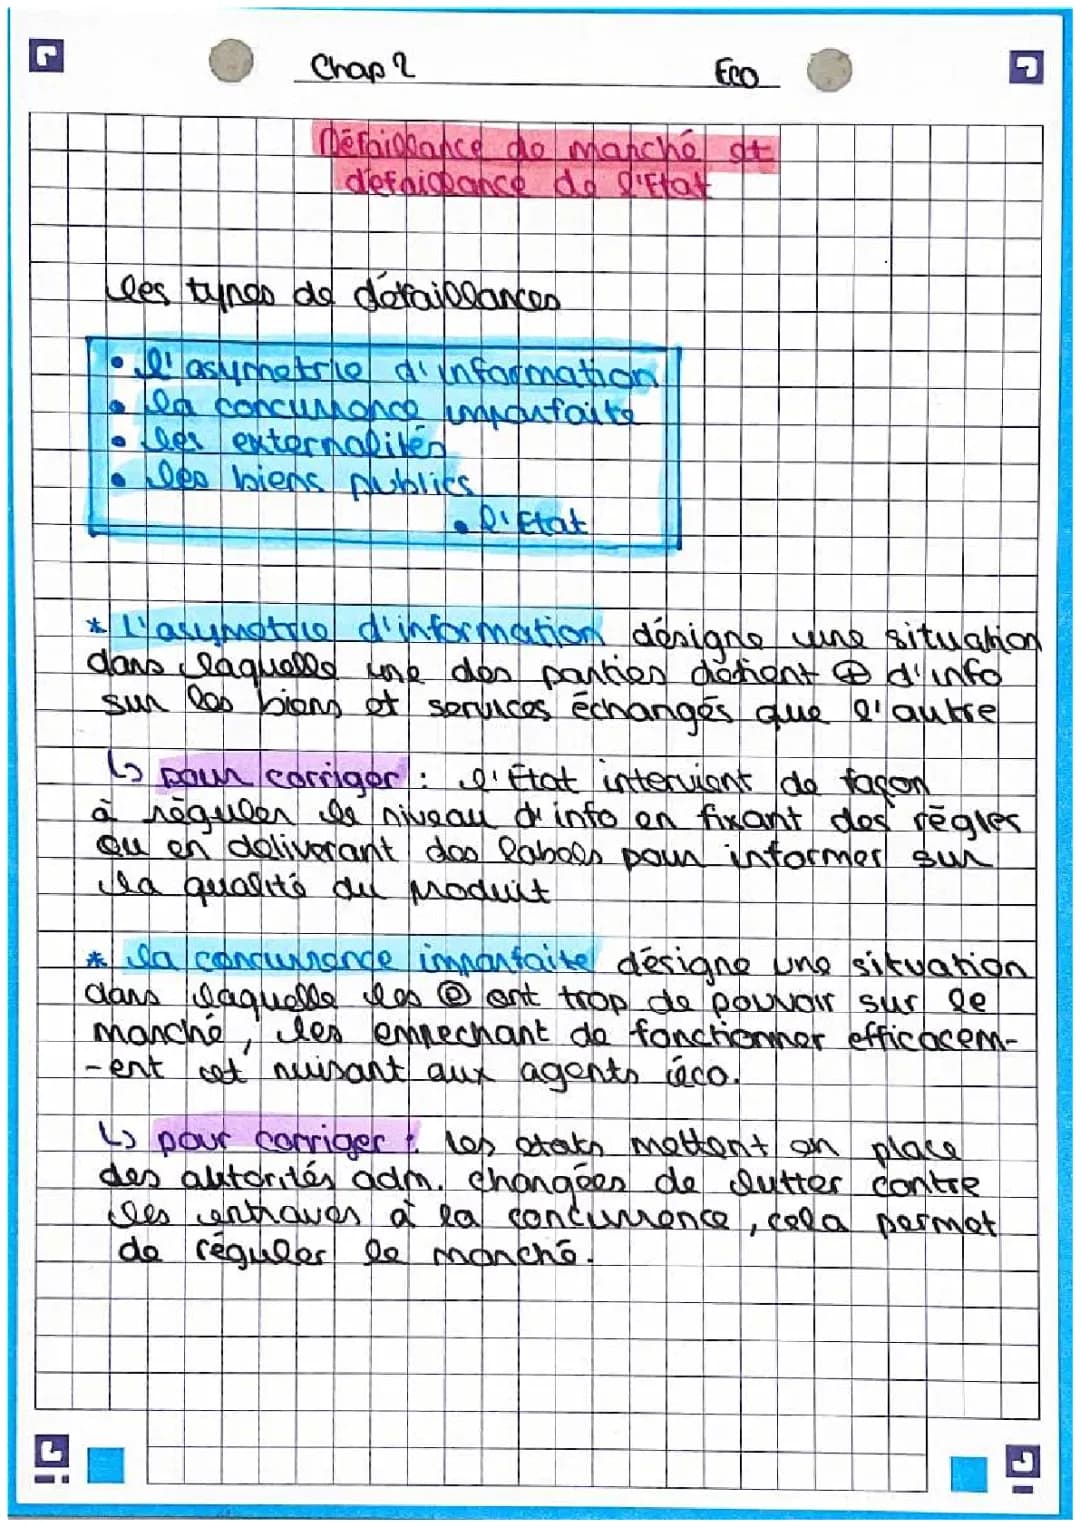 Chap 2
Eco
Défaillance de marché et
défaillance de l'Etat
les types de défaillances
• l'asymetrie d'information
• la concurrence imparfaite
• les externalités
• les biens publics
• l'Etat
* L'asymetrie d'information désigne une situation
dans laquelle une des parties détient ⊕ d'info
sur les biens et services échangés que l'autre
↳ pour corriger : l'État intervient de façon
à réguler le niveau d'info en fixant des règles
ou en deliverant des labels pour informer sur
la qualité du produit
* la concurrence imparfaite désigne une situation
dans laquelle les ⓔ ont trop de pouvoir sur le
marché, les empechant de fonctionner efficacem-
-ent et nuisant aux agents éco.
↳ pour corriger : les états mettent en place
des autorités adm. chargées de lutter contre
les entraves à la concurrence, cela permet
de réguler le marché.